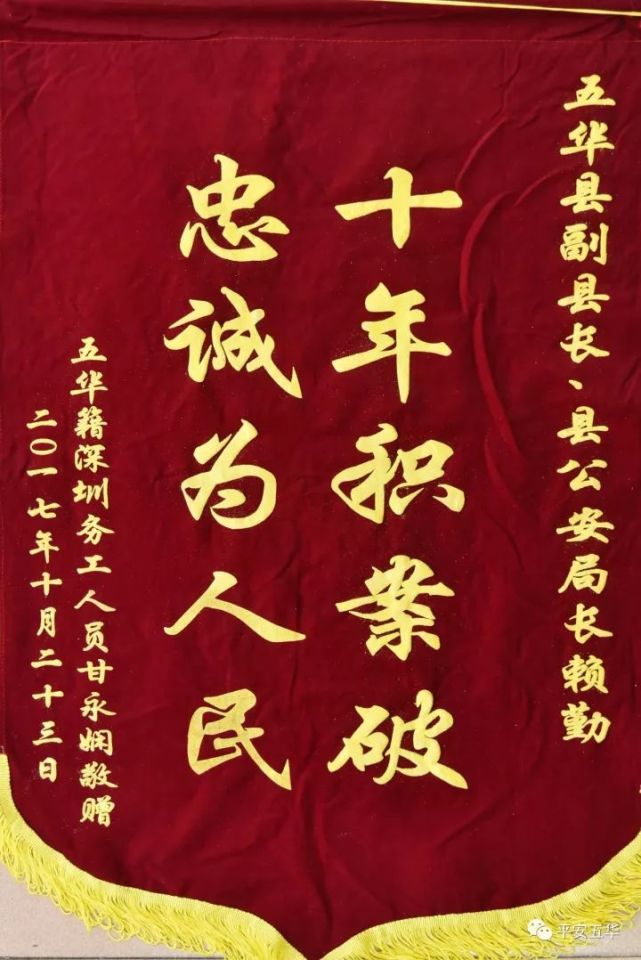 五华县副县长、县公安局长赖勤
十年积案破
忠诚为人民
五华籍深圳务工人员甘永娴敬赠
二〇一七年十月二十三日
平安五华